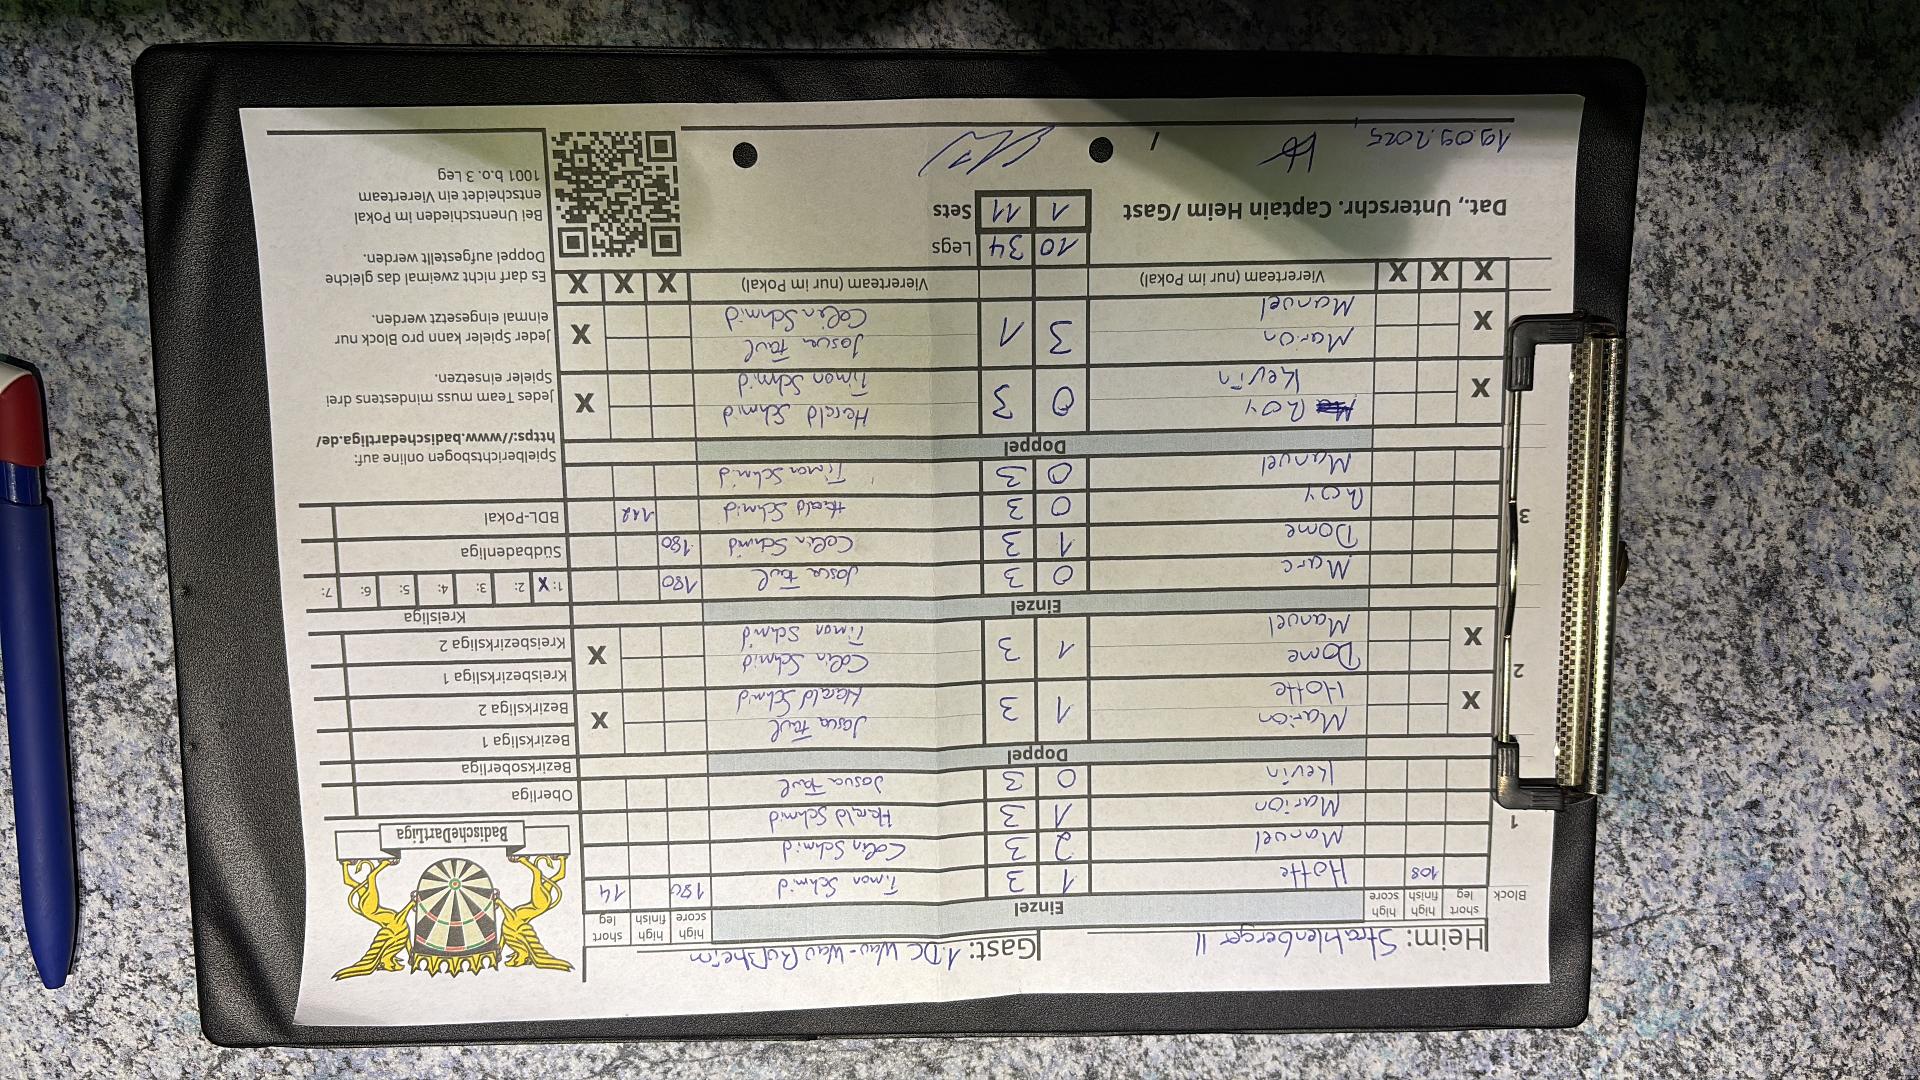 Heim: Strahlenberger II
Gast: 1. DC Wau-Wau Rußheim
Block
short leg
high finish
high score
Einzel
high score
high finish
short leg
108 Hotte 1 3 Timon Schmid 180 14
Manuel 2 3 Colin Schmid
1 Marion 1 3 Harald Schmid
Kevin 0 3 Josua Faul
Doppel
X Marion 1 3 Josua Faul X
Hotte Harald Schmid
2
X Dome 1 3 Colin Schmid X
Manuel Timon Schmid
Einzel
Marc 0 3 Josua Faul 180
Dome 1 3 Colin Schmid 180
3 Roy 0 3 Harald Schmid 112
Manuel 0 3 Timon Schmid
Doppel
X Roy 0 3 Harald Schmid X
Kevin Timon Schmid
X Marion 3 1 Josua Faul X
Manuel Colin Schmid
X X X Viererteam (nur im Pokal) Viererteam (nur im Pokal) X X X
10 34 Legs
Dat., Unterschr. Captain Heim/Gast 1 11 Sets
19.09.2025,
BadischeDartLiga
Oberliga
Bezirksoberliga
Bezirksliga 1
Bezirksliga 2
Kreisbezirksliga 1
Kreisbezirksliga 2
Kreisliga
1: X 2: 3: 4: 5: 6: 7:
Südbadenliga
BDL-Pokal
Spielberichtsbogen online auf:
https://www.badischedartliga.de/
Jedes Team muss mindestens drei
Spieler einsetzen.
Jeder Spieler kann pro Block nur
einmal eingesetzt werden.
Es darf nicht zweimal das gleiche
Doppel aufgestellt werden.
Bei Unentschieden im Pokal
entscheidet ein Viererteam
1001 b.o. 3 Leg